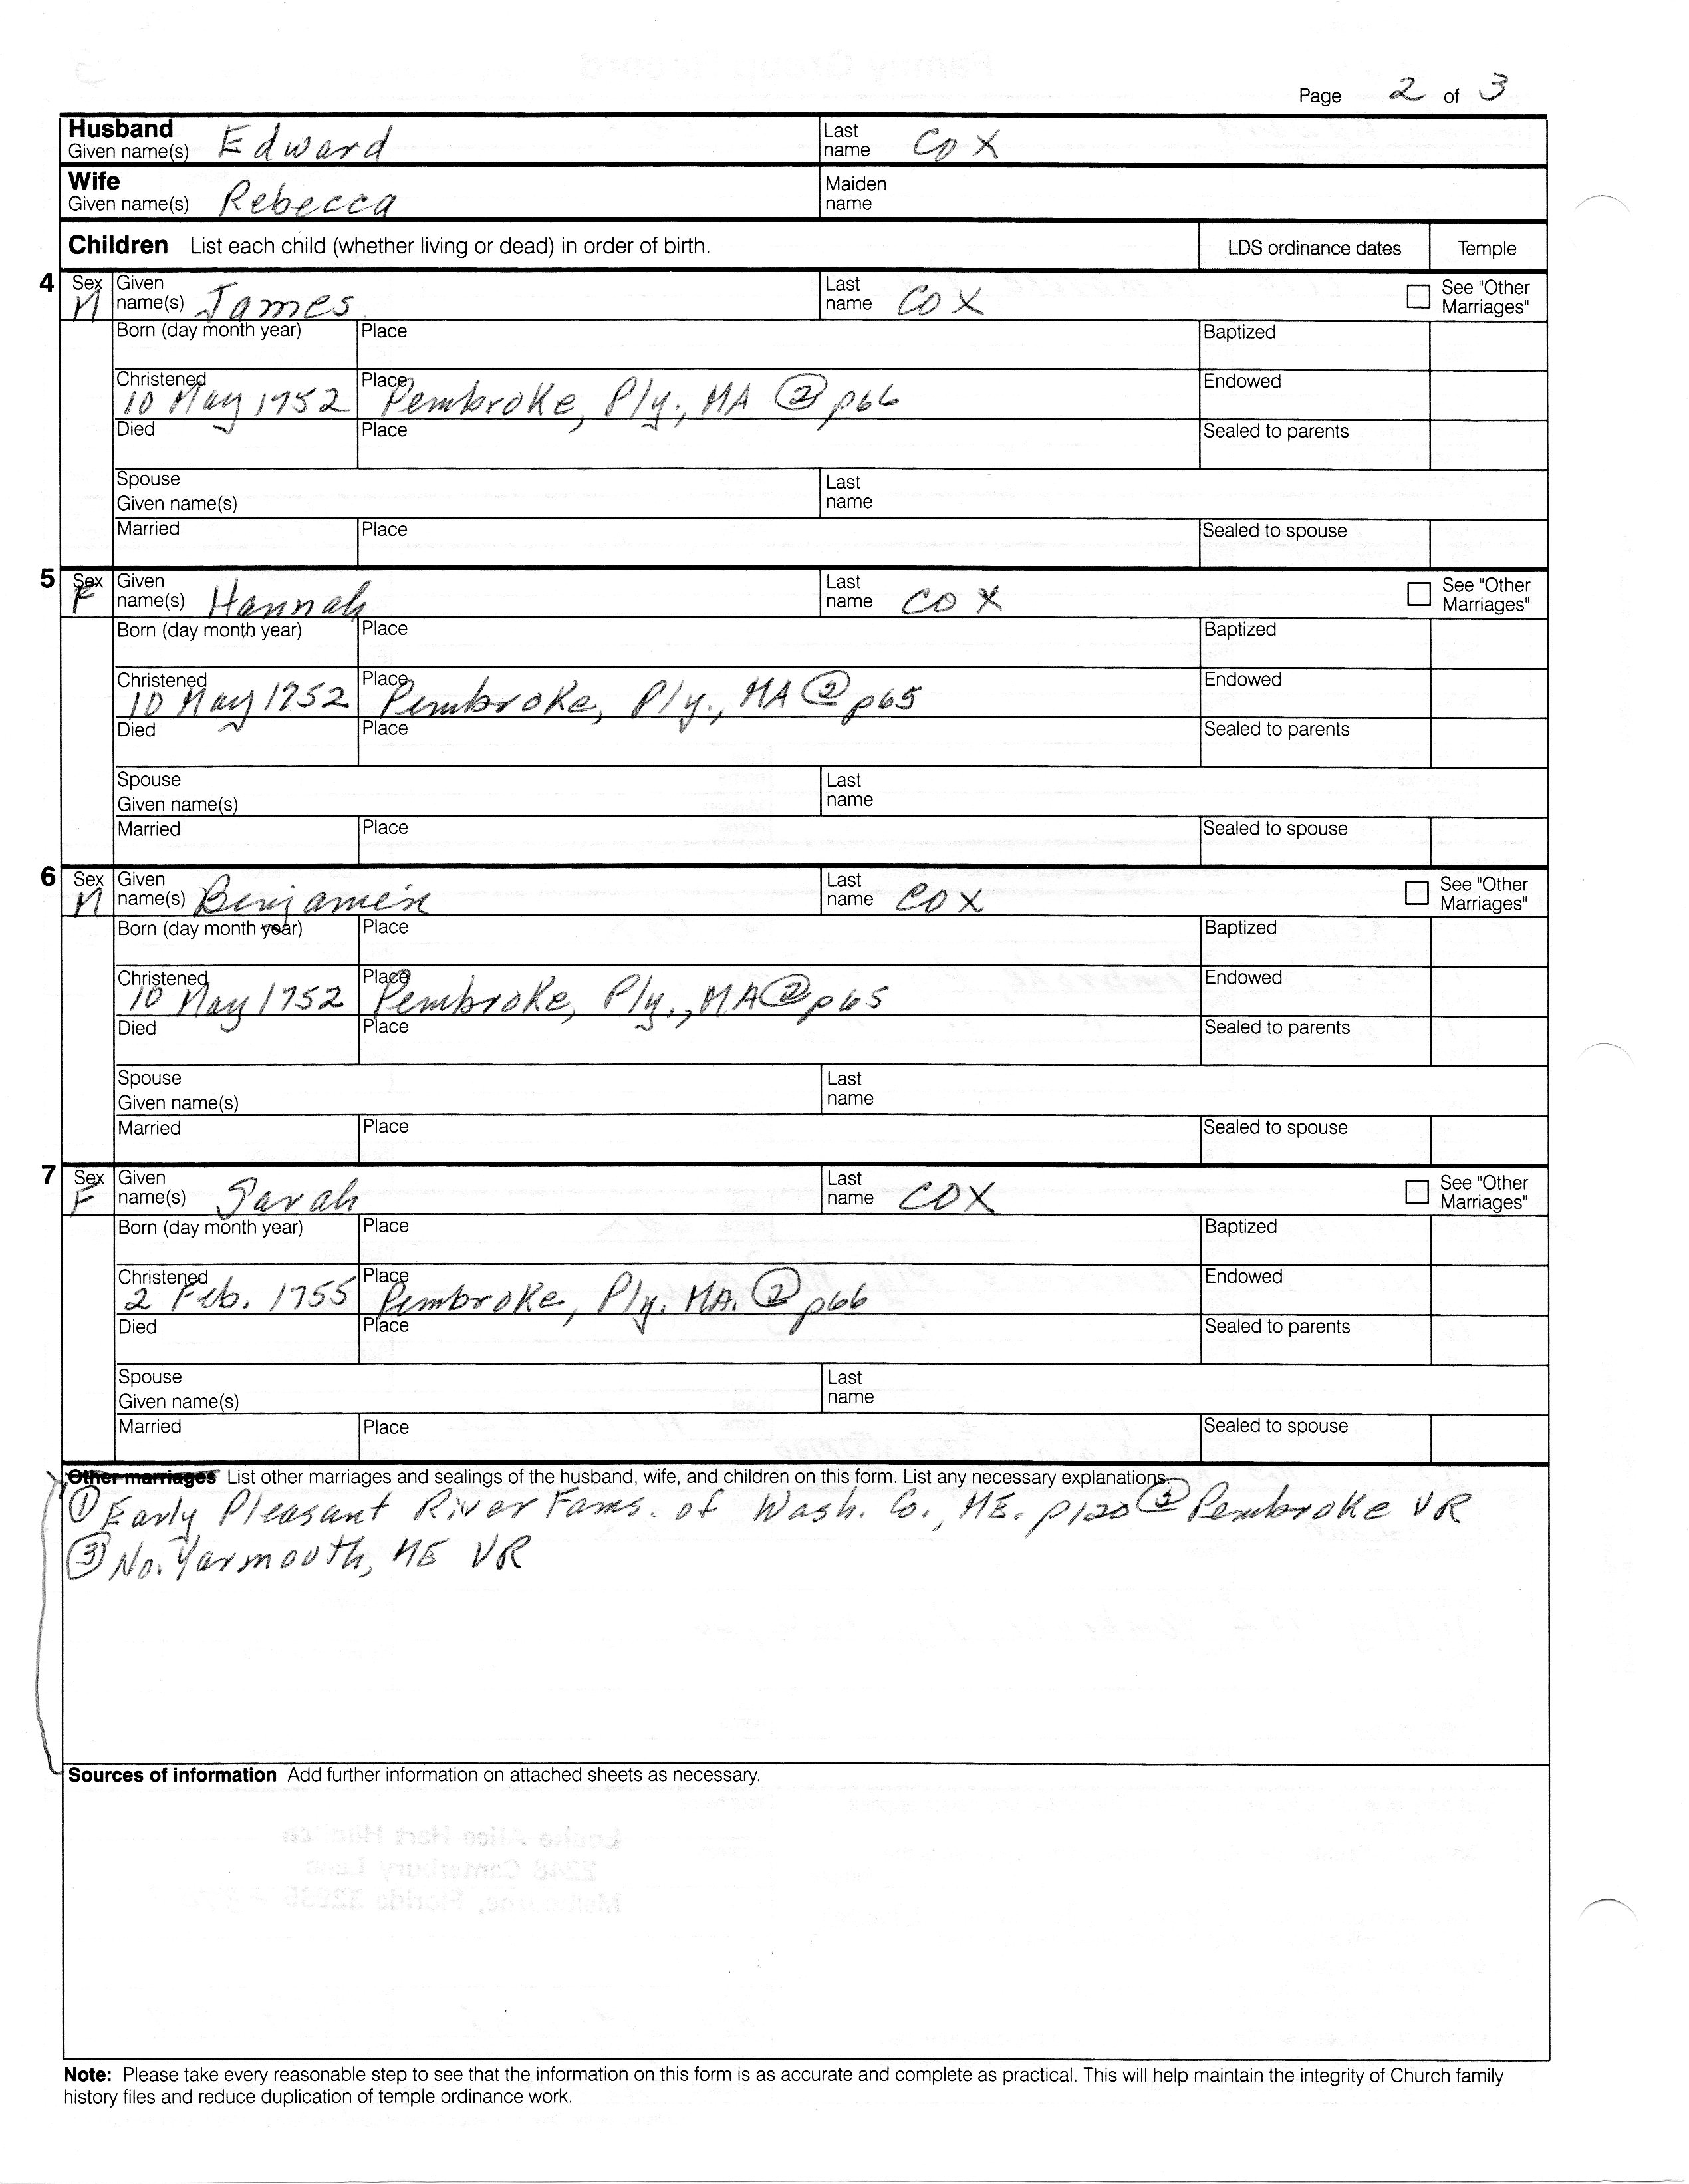 Page 2 of 3
Husband
Given name(s) Edward Last name Cox
Wife
Given name(s) Rebecca Maiden name
Children List each child (whether living or dead) in order of birth. LDS ordinance dates Temple
4 Sex M Given name(s) James Last name Cox See "Other Marriages"
Born (day month year) Place Baptized
Christened 10 May 1752 Place Pembroke, Ply., MA ② p66 Endowed
Died Place Sealed to parents
Spouse Given name(s) Last name
Married Place Sealed to spouse
5 Sex F Given name(s) Hannah Last name Cox See "Other Marriages"
Born (day month year) Place Baptized
Christened 10 May 1752 Place Pembroke, Ply., MA ② p65 Endowed
Died Place Sealed to parents
Spouse Given name(s) Last name
Married Place Sealed to spouse
6 Sex M Given name(s) Benjamin Last name Cox See "Other Marriages"
Born (day month year) Place Baptized
Christened 10 May 1752 Place Pembroke, Ply., MA ② p65 Endowed
Died Place Sealed to parents
Spouse Given name(s) Last name
Married Place Sealed to spouse
7 Sex F Given name(s) Sarah Last name Cox See "Other Marriages"
Born (day month year) Place Baptized
Christened 2 Feb. 1755 Place Pembroke, Ply. MA. ② p66 Endowed
Died Place Sealed to parents
Spouse Given name(s) Last name
Married Place Sealed to spouse
Other marriages List other marriages and sealings of the husband, wife, and children on this form. List any necessary explanations.
① Early Pleasant River Fams. of Wash. Co., ME. p120 ② Pembroke VR
③ No. Yarmouth, ME VR
Sources of information Add further information on attached sheets as necessary.
Note: Please take every reasonable step to see that the information on this form is as accurate and complete as practical. This will help maintain the integrity of Church family
history files and reduce duplication of temple ordinance work.